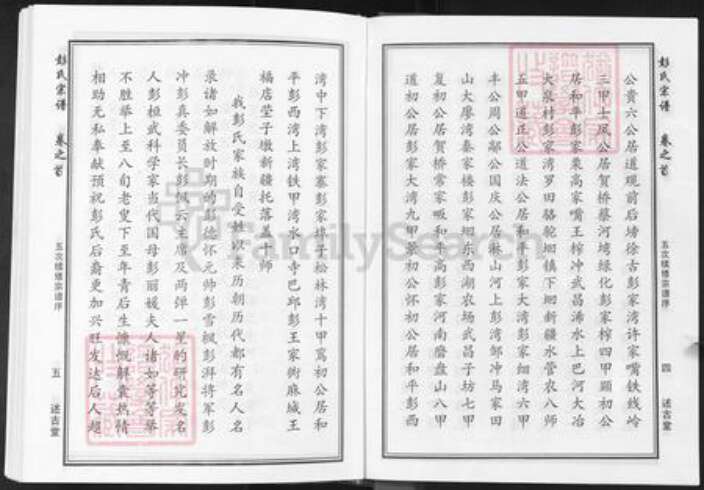 彭氏宗谱
卷之首
五次续修宗谱序
四
述古堂
公贵六公居道观前后塝徐古彭家湾许家嘴铁线岭
三甲士凤公居贺桥蔡河塆绿化彭家榨四甲显初公
居和平彭家栗高家嘴王榨冲武昌浠水上巴河大冶
大泉村彭家湾罗田骆驼坳镇下畈新疆水管农八师
五甲道正公道法公居和平彭家大湾彭家细湾六甲
丰公周公邻公国庆公居淋山河上彭湾邹冲马家田
山大廖湾秦家楼彭家坳东西湖农场武昌子坊七甲
复初公居贺桥常家畈和平高彭家河南磨盘山八甲
道初公居彭家大湾九甲景初公怀初公居和平彭西
湾中下湾彭家寨彭家塝子松林湾十甲寓初公居和
平彭西湾上湾铁甲湾水口寺巴邱彭王家街麻城王
福店茔子墩新疆托落盖十师
我彭氏家族自受姓以来历朝历代都有名人名
录诸如解放时期的彭德怀元帅彭雪枫彭湃将军彭
冲彭真委员长彭佩云主席及两弹一星的研究发名
人彭桓武科学家当代国母彭丽媛夫人诸如等等举
不胜举上至八旬老叟下至年青后生慷慨解囊热情
相助无私奉献预祝彭氏后裔更加兴旺发达后人超
彭氏宗谱
卷之首
五次续修宗谱序
五
述古堂
FamilySearch